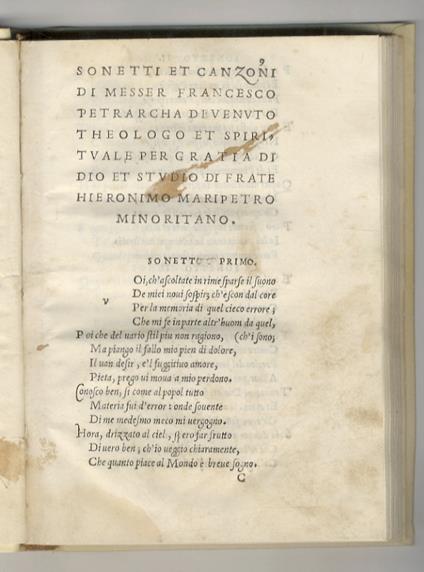 9
SONETTI ET CANZONI
DI MESSER FRANCESCO
PETRARCHA DEVENVTO
THEOLOGO ET SPIRI,
TVALE PER GRATIA DI
DIO ET STVDIO DI FRATE
HIERONIMO MARIPETRO
MINORITANO.
SONETTO PRIMO.
v Oi, ch'ascoltate in rime sparse il suono
De miei noui sospir, ch'escon dal core
Per la memoria di quel cieco errore;
Che mi fe in parte altr'huom da quel,
Poi che del uario stil piu non ragiono, (ch'i sono;
Ma piango il fallo mio pien di dolore,
Il uan desir, e'l fuggitiuo amore,
Pieta, prego ui moua a mio perdono.
Conosco ben, si come al popol tutto
Materia fui d'error: onde souente
Di me medesmo meco mi uergogno.
Hora, drizzato al ciel, spero far frutto
Di uero ben; ch'io ueggio chiaramente,
Che quanto piace al Mondo è breue sogno.
C